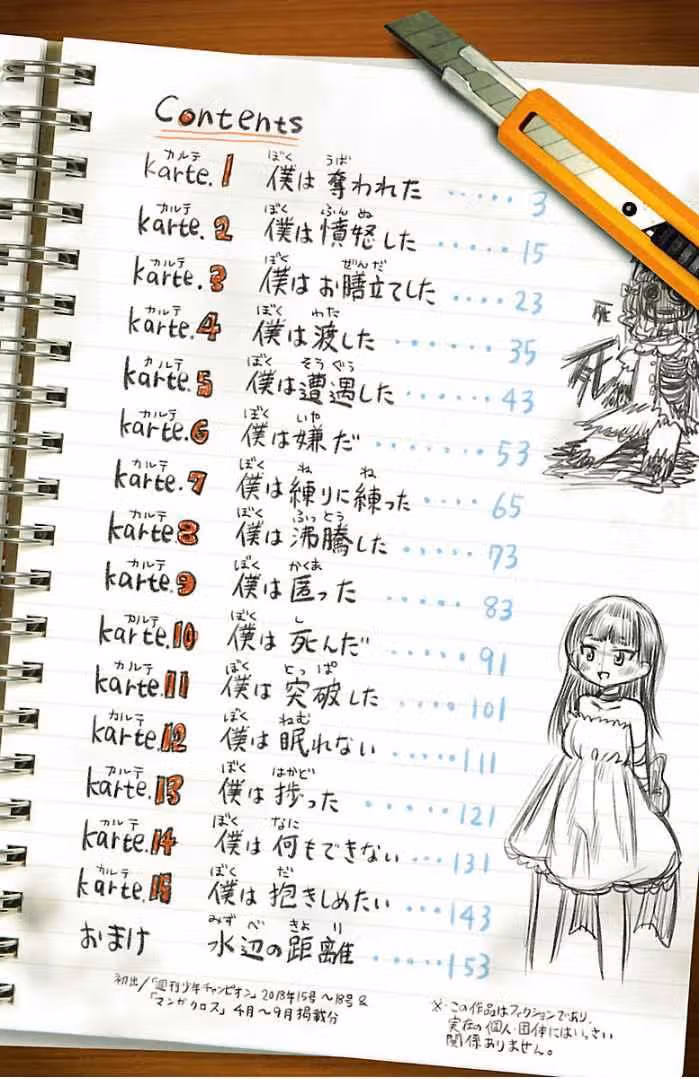 Contents
karte.1 僕は奪われた ..... 3
karte.2 僕は憤怒した ..... 15
karte.3 僕はお膳立てした .... 23
karte.4 僕は渡した ...... 35
karte.5 僕は遭遇した .... 43
karte.6 僕は嫌だ ....... 53
karte.7 僕は練りに練った .... 65
karte.8 僕は沸騰した ..... 73
karte.9 僕は匿った ..... 83
karte.10 僕は死んだ ..... 91
karte.11 僕は突破した .... 101
karte.12 僕は眠れない ..... 111
karte.13 僕は捗った ..... 121
karte.14 僕は何もできない ... 131
karte.15 僕は抱きしめたい ... 143
おまけ 水辺の距離 ..... 153
初出/「週刊少年チャンピオン」2018年15号〜18号&
「マンガクロス」4月〜9月掲載分
※この作品はフィクションであり、
実在の個人・団体にはいっさい
関係ありません。